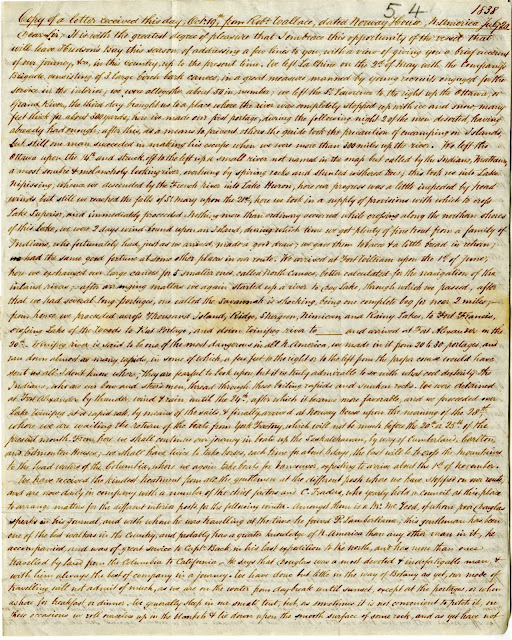 54 1838
Copy of a letter received this day, Oct. 19th from Robt. Wallace, dated Norway House, N. America July 1st
Dear Sir, It is with the greatest degree of pleasure that I embrace this opportunity of the vessel that
will leave Hudson's Bay this season of addressing a few lines to you, with a view of giving you a brief account
of our journey, &c, in this country, up to the present time. We left La Chine on the 2d of May with the Company's
Brigade, consisting of 3 large birch bark canoes, in a good measure manned by young recruits engaged for the
service in the interior, we were altogether about 50 in number. We left the St. Lawrence to the right up the Ottawa, or
Grand River, the third day brought us to a place where the river was completely stopped up with ice and snow, many
feet thick for about 300 yards, here we made our first portage, during the following night 2 of the men deserted, having
already had enough, after this, as a means to prevent others the guide took the precaution of encamping on Islands,
but still one man succeeded in making his escape when we were more than 300 miles up the river. We left the
Ottawa upon the 14th and struck off to the left up a small river not named in the map but called by the Indians, Mattawa,
a most sombre & melancholy looking river, owing to spiry rocks and stunted withered trees; this took us into Lake
Nipissing, whence we descended by the French River into Lake Huron, here our progress was a little impeded by head
winds, but still we reached the falls of St. Mary upon the 21st, here we took in a supply of provisions with which to cross
Lake Superior, and immediately proceeded. Nothing more than ordinary occurred while crossing along the northern shores
of this Lake, we were 2 days wind bound upon an Island, during which time we got plenty of fine trout from a family of
Indians, who fortunately had, just as we arrived, made a good draw, we gave them tobacco & a little bread in return,
we had the same good fortune at some other places in our route. We arrived at Fort William upon the 1st of June,
here we exchanged our large canoes for 5 smaller ones called North Canoes, better calculated for the navigation of the
inland rivers, after arranging matters we again started up a river to Dog Lake, through which we passed, after
that we had several long portages, one called the Savannah is shocking, being one complete bog for near 2 miles,
from hence we proceeded across Thousand Island, Ridge, Sturgeon, Nimican and Rainy Lakes, to Fort Francis,
crossing Lake of the Woods to Rat Portage, and down Winipeg river to and arrived at Fort Alexander on the
20th. Winipeg river is said to be one of the most dangerous in all N. America, we made in it from 20 to 30 portages, and
ran down almost as many rapids, in some of which, a few feet to the right or to the left from the proper course would have
sent us all I dont know where, they are fearful to look upon but it is truly admirable to see with what cool dexterity the
Indians, who are bow and steersmen, thread through these boiling rapids and sunken rocks. We were detained
at Fort Alexander by thunder, wind & rain until the 24th, after which it became more favorable, and we proceeded over
Lake Winipeg at a rapid rate, by means of the sails & finally arrived at Norway House upon the morning of the 28th,
where we are waiting the return of the boats from York Factory, which will not be much before the 20th or 25th of the
present month. From here we shall continue our journey in boats up the Saskatchawan, by way of Cumberland, Carlton,
and Edmonton Houses; we shall have twice to take horses, each time for about 5 days, the last will be to cross the mountains
to the head waters of the Columbia, where we again take boats for Vancouver, expecting to arrive about the 1st of November.
We have received the kindest treatment from all the gentlemen at the different posts where we have stopped on our route,
and are now daily in company with a number of the chief factors and C. Traders, who yearly hold a council at this place
to arrange matters for the different interior posts for the following season. Amongst them is a Mr. McLeod, of whom poor Douglas
speaks in his Journal, and with whom he was travelling at the time he found P. Lambertiana, this gentleman has been
one of the best walkers in the Country, and probably has a greater knowledge of N. America than any other man in it, he
accompanied, and was of great service to Captn. Back in his last expedition to the north, and has more than once
travelled by land from the Columbia to California. He says that Douglas was a most devoted & indefatigable man, &
with him always the best of company in a journey. We have done but little in the way of Botany as yet, our mode of
travelling will not admit of much, as we are on the water from daybreak until sunset, except at the portages, or when
ashore for breakfast or dinner. We generally sleep in our small tent, but as sometimes it is not convenient to pitch it, on
these occasions we roll ourselves up in the blankets & lie down upon the smooth surface of some rock, and as yet have not